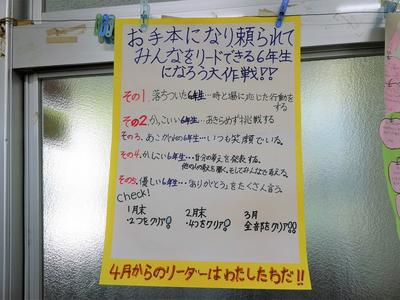 お手本になり頼られて
みんなをリードできる6年生
になろう大作戦!!
その1. 落ちついた6年生…時と場に応じた行動を
する
その2. かっこいい6年生…あきらめず挑戦する
その3. あこがれの6年生…いつも笑顔でいる。
その4. かしこい6年生…自分の考えを発表する。
他の人の考えを聞く。そしてみんなで考える。
その5. 優しい6年生…「ありがとう」をたくさん言う。
check!
1月末 2月末 3月
・2つをクリア! ・4つをクリア! 全部をクリア!!
4月からのリーダーはわたしたちだ!!